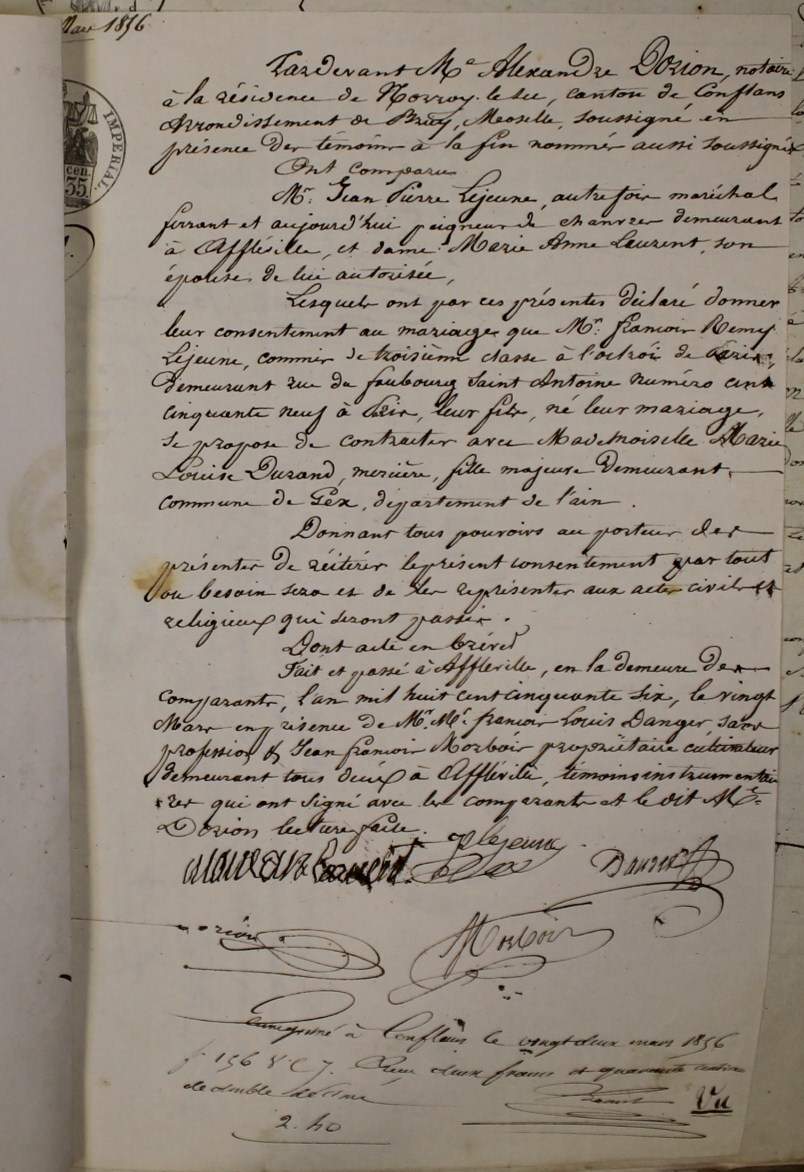 Mars 1856
IMPERIAL.
cen.
35.
Pardevant Me Alexandre Dorion, notaire
à la résidence de Norroy-le-sec, canton de Conflans
Arrondissement de Briey, Moselle, soussigné en
présence des témoins à la fin nommés aussi soussignés
Ont comparu
Mr. Jean Pierre Lejeune, autrefois maréchal
ferrant et aujourd'hui peigneur de chanvres demeurant
à Affléville, et dame Marie Anne Laurent, son
épouse de lui autorisée,
Lesquels ont par ces présentes déclaré donner
leur consentement au mariage que Mr. françois Remy
Lejeune, commis de troisième classe à l'octroi de Paris,
demeurant rue du faubourg Saint Antoine numéro cent
cinquante neuf à Paris, leur fils, né leur mariage,
se propose de contracter avec Mademoiselle Marie
Louise Durand, mercière, fille majeure demeurant
commune de Gex, département de l'ain.
Donnant tous pouvoirs au porteur des
présentes de réitérer le présent consentement par tout
ou besoin sera et de les représenter aux actes civils et
religieux qui seront passés.
Dont acte en brévet
Fait et passé à Affléville, en la demeure des
comparants, l'an mil huit cent cinquante six, le vingt
Mars en présence de Mr. Mr. françois Louis Danger, sans
profession & Jean françois Morbois propriétaire cultivateur
demeurant tous deux à Affléville, témoins instrumentai
res qui ont signé avec les comparants et le dit Me.
Dorion lecture faite.
Lejeune
Danger
Dorion
Morbois
Enregistré à Conflans le vingt deux mars 1856
f° 156 Vo C 7. Reçu deux francs et quarante centimes
de double décime
2.40
Vu